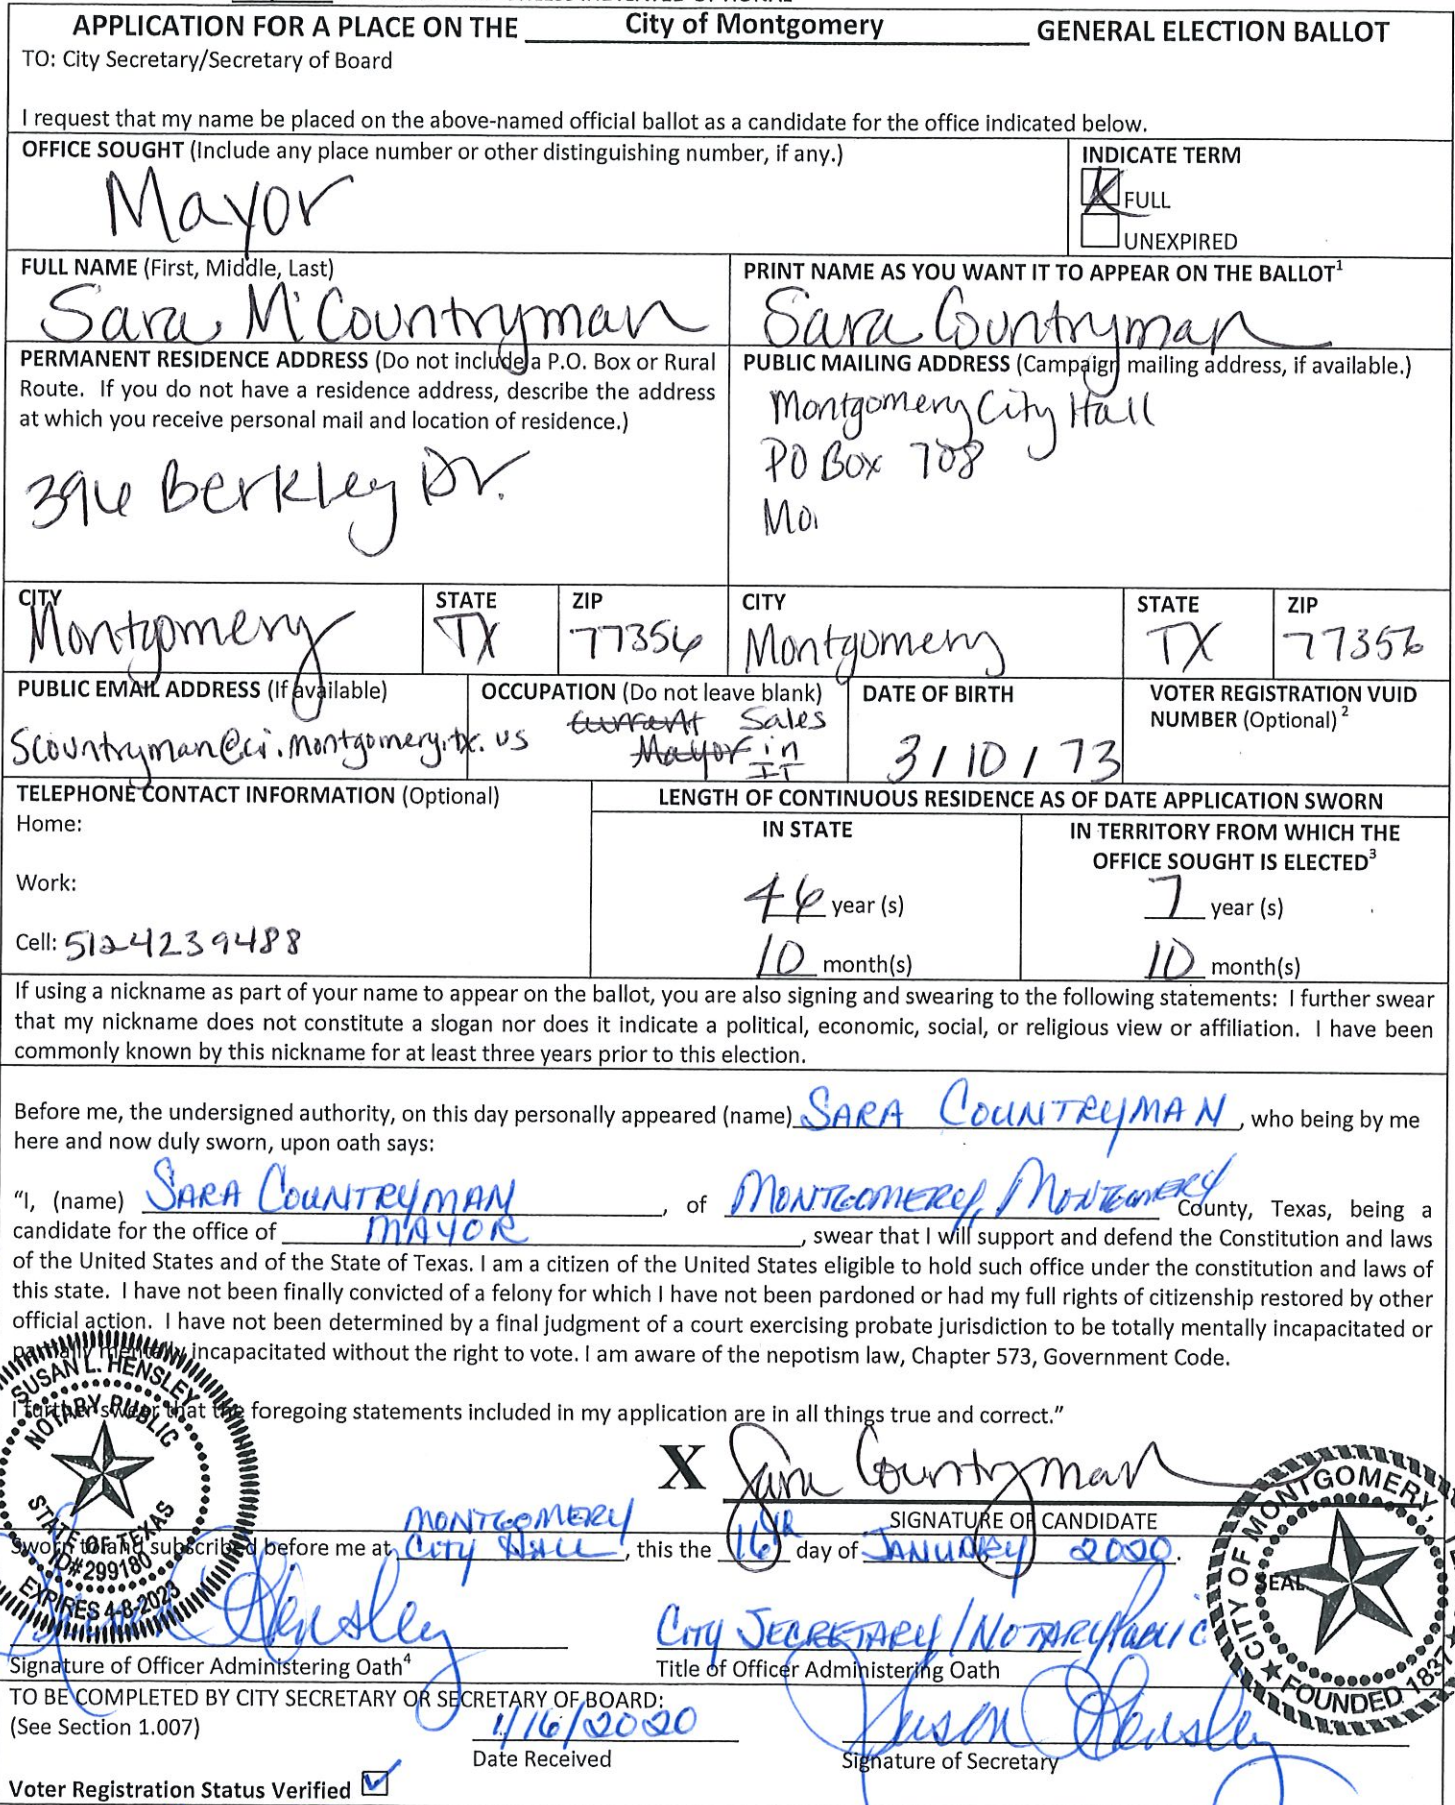 APPLICATION FOR A PLACE ON THE City of Montgomery GENERAL ELECTION BALLOT
TO: City Secretary/Secretary of Board
I request that my name be placed on the above-named official ballot as a candidate for the office indicated below.
OFFICE SOUGHT (Include any place number or other distinguishing number, if any.)
Mayor
INDICATE TERM
X FULL
UNEXPIRED
FULL NAME (First, Middle, Last)
Sara M Countryman
PRINT NAME AS YOU WANT IT TO APPEAR ON THE BALLOT¹
Sara Countryman
PERMANENT RESIDENCE ADDRESS (Do not include a P.O. Box or Rural
Route. If you do not have a residence address, describe the address
at which you receive personal mail and location of residence.)
396 Berkley Dr.
PUBLIC MAILING ADDRESS (Campaign mailing address, if available.)
Montgomery City Hall
PO Box 708
CITY
Montgomery
STATE
TX
ZIP
77356
CITY
Montgomery
STATE
TX
ZIP
77356
PUBLIC EMAIL ADDRESS (If available)
scountryman@ci.montgomery.tx.us
OCCUPATION (Do not leave blank)
Current Sales
Mayor in
IT
DATE OF BIRTH
3/10/73
VOTER REGISTRATION VUID
NUMBER (Optional)²
TELEPHONE CONTACT INFORMATION (Optional)
Home:
Work:
Cell: 5124239488
LENGTH OF CONTINUOUS RESIDENCE AS OF DATE APPLICATION SWORN
IN STATE
46 year (s)
10 month(s)
IN TERRITORY FROM WHICH THE
OFFICE SOUGHT IS ELECTED³
7 year (s)
10 month(s)
If using a nickname as part of your name to appear on the ballot, you are also signing and swearing to the following statements: I further swear
that my nickname does not constitute a slogan nor does it indicate a political, economic, social, or religious view or affiliation. I have been
commonly known by this nickname for at least three years prior to this election.
Before me, the undersigned authority, on this day personally appeared (name) SARA COUNTRYMAN, who being by me
here and now duly sworn, upon oath says:
"I, (name) SARA COUNTRYMAN, of MONTGOMERY, MONTGOMERY County, Texas, being a
candidate for the office of MAYOR, swear that I will support and defend the Constitution and laws
of the United States and of the State of Texas. I am a citizen of the United States eligible to hold such office under the constitution and laws of
this state. I have not been finally convicted of a felony for which I have not been pardoned or had my full rights of citizenship restored by other
official action. I have not been determined by a final judgment of a court exercising probate jurisdiction to be totally mentally incapacitated or
partially mentally incapacitated without the right to vote. I am aware of the nepotism law, Chapter 573, Government Code.
I further swear that the foregoing statements included in my application are in all things true and correct."
SUSAN L. HENSLEY
NOTARY PUBLIC
STATE OF TEXAS
ID#299180
EXPIRES 4-8-2023
X Sara Countryman
SIGNATURE OF CANDIDATE
MONTGOMERY
Sworn to and subscribed before me at CITY HALL, this the 16 day of JANUARY 2020.
CITY OF MONTGOMERY,
SEAL
FOUNDED 1837
Susan Hensley
Signature of Officer Administering Oath⁴
CITY SECRETARY/NOTARY PUBLIC
Title of Officer Administering Oath
TO BE COMPLETED BY CITY SECRETARY OR SECRETARY OF BOARD:
(See Section 1.007)
1/16/2020
Date Received
Susan Hensley
Signature of Secretary
Voter Registration Status Verified